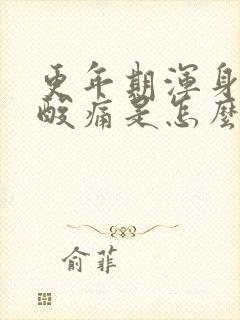 更年期渾身
酸痛是怎麼
俞菲